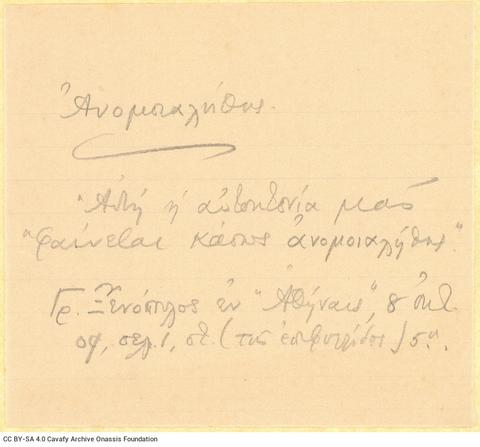 Ἀνομοιαλήθης.
"Αὐτὴ ἡ αὐτοκτονία μᾶς
"φαίνεται κάπως ἀνομοιαλήθης".
Γρ. Ξενόπουλος ἐν "Ἀθήναις", 8 Ὀκτ.
σελ. 1, στ. (τῆς ἐπιφυλλίδος) 5η.
CC BY-SA 4.0 Cavafy Archive Onassis Foundation